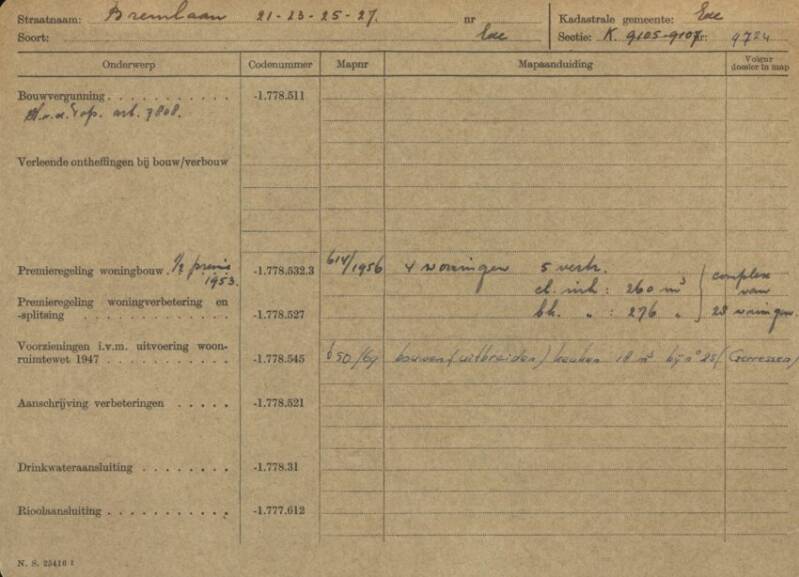 Straatnaam: Bremlaan 21-23-25-27. nr Kadastrale gemeente: Ede
Soort: Ede Sectie: K. 9105-9107 nr: 9724
Onderwerp Codenummer Mapnr Mapaanduiding Volgnr dossier in map
Bouwvergunning . . . . . . . . . . . -1.778.511
art. 7808.
Verleende ontheffingen bij bouw/verbouw
Premieregeling woningbouw. ½ premie 1953. -1.778.532.3 614/1956 4 woningen 5 vertr.
cl. inh : 260 m³ } complex van
Premieregeling woningverbetering en
-splitsing . . . . . . . . . . . -1.778.527 bk. „ : 276 „ 28 woningen.
Voorzieningen i.v.m. uitvoering woon-
ruimtewet 1947 . . . . . . . . -1.778.545 650/67 bouwen (uitbreiden) keuken 18 m³ bij n° 25 (Gerressen)
Aanschrijving verbeteringen . . . . . -1.778.521
Drinkwateraansluiting . . . . . . . . -1.778.31
Rioolaansluiting . . . . . . . . . . . -1.777.612
N. S. 25416 ²